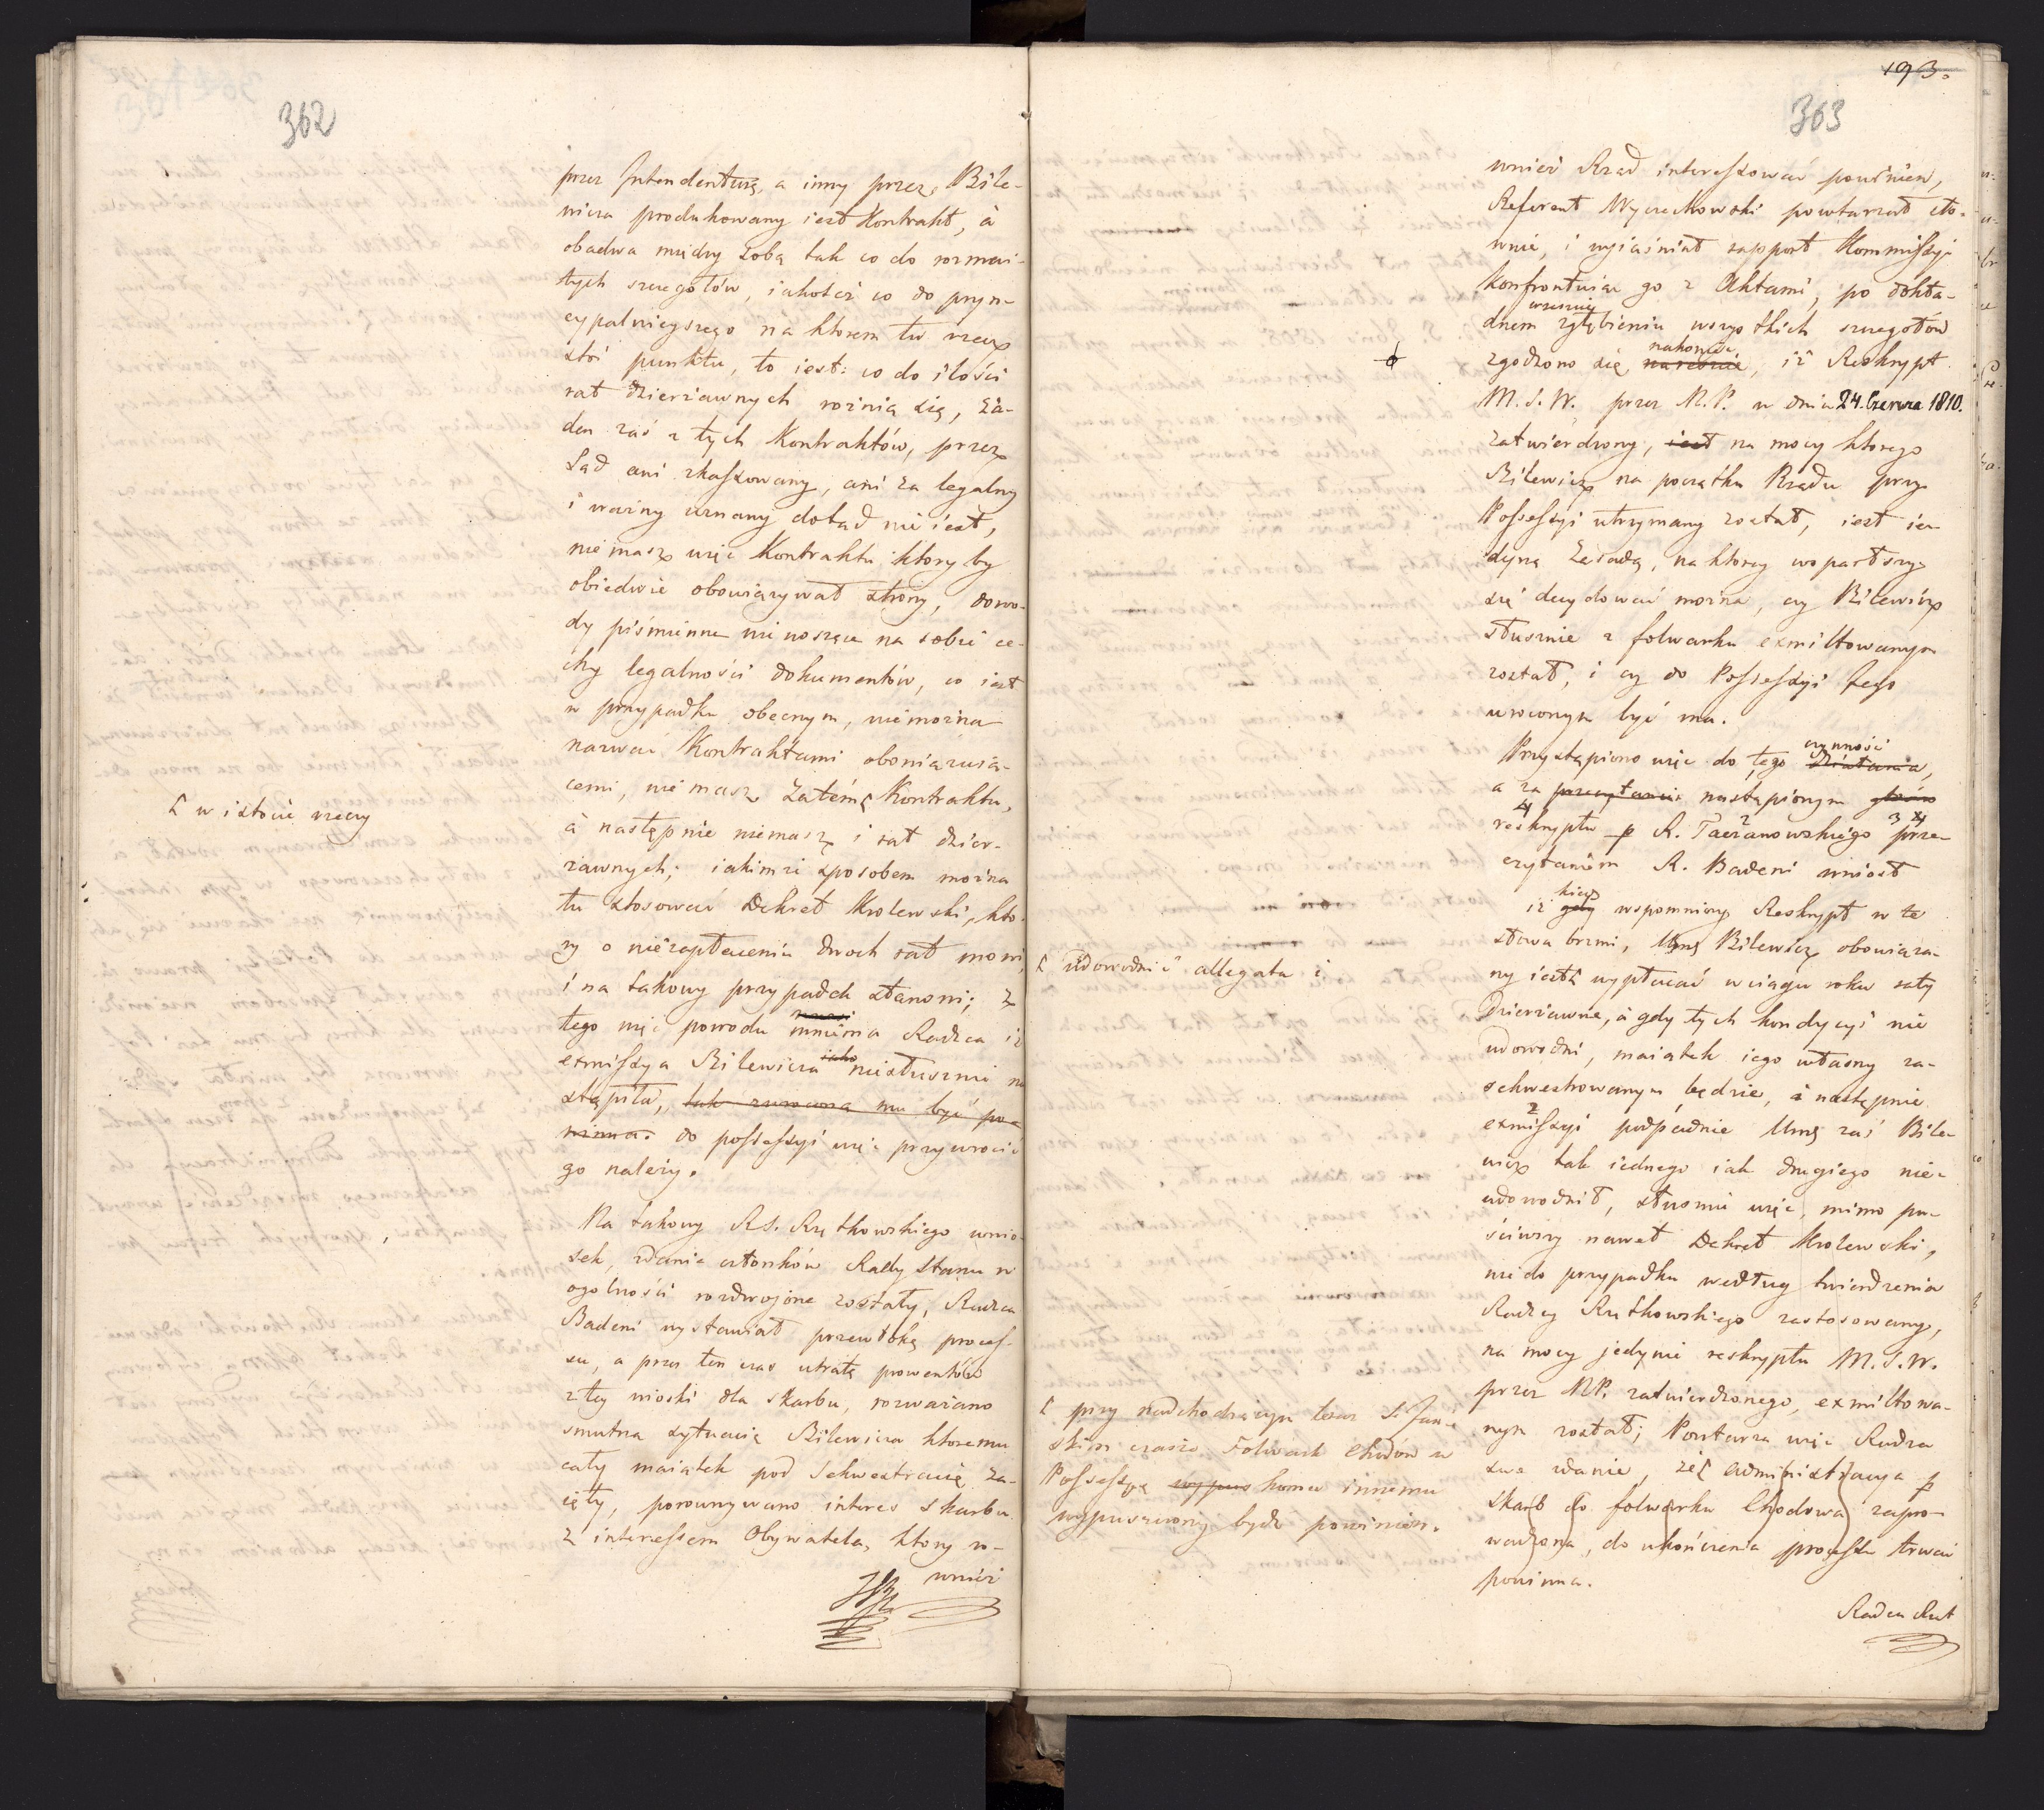 362
przez Intendenturę, a inny przez Bile-
wicza produkowany iest Kontrakt, à
obadwa między sobą tak co do rozmai-
tych szczegółów, iakoteż co do pryn-
cypalnieyszego na ktorem tu rzecz
stoi punktu, to iest: co do ilości
rat dzierżawnych rożnią się, ża-
den zaś z tych Kontraktów, przez
Sąd ani skassowany, ani za legalny
i ważny uznany dotąd nie iest,
nie masz więc Kontraktu, ktory by
obiedwie obowiązywał strony, dowo-
dy piśmienne nienoszące na sobie ce-
chy legalności dokumentów, co iest
w przypadku obecnym, nie można
nazwać Kontraktami obowiązuią-
cemi, nie masz zatém Kontraktu,
[ w istocie rzeczy
à następnie niemasz i rat dzier-
żawnych; iakimże sposobem można
tu stosować Dekret Krolewski, kto-
ry o niezapłaceniu dwoch rat mowi,
i na takowy przypadek stanowi; z
tego więc powodu mniema Radca iż
exmissya Bilewicza iako niesłusznie na
stąpiła, tak zwrocona mu być po-
winna. do possessyi więc przywrocić
go należy.
Na takowy R. S. Rutkowskiego wnio-
sek, zdania członków Rady Stanu w
ogolności rozdwojone zostały, Radca
Badeni wystawiał przewłokę proces-
su, a przez ten czas utratę prowentów
z tey wioski dla skarbu, rozważano
smutną sytuacią Bilewicza ktoremu
cały maiątek pod sekwestracią za-
ięty, porownywano interes skarbu
z interessem Obywatela, ktory ro-
wnież
193.
363
wnież Rząd interessować powinien,
Referent Wyczechowski powtarzał sło-
wnie, i wyiaśniał rapport Kommissyi
konfrontuiąc go z Aktami, po dokła-
dnem zgłębieniu wszystkich szczegołów
zgodzono się nareszcie nakoniec, iż Reskrypt
M. S. W. przez R. P. w dniu 24. Czerwca 1810.
zatwierdzony, iest na mocy ktorego
Bilewicz na początku Rządu przy
Possessyi utrzymany został, iest ie-
dyną Zasadą, na ktorey wsparłszy
się decydować można, czy Bilewicz
słusznie z folwarku exmittowanym
został, i czy do Possessyi tego
zwroconym być ma.
Przystąpiono więc do tego działania czynności,
a za przeczytaniem nastąpionym
reskryptu p R. Taczanowskiego prze-
czytaniem R. Badeni wniosł
iż gdy wspomniony Reskrypt w te
słowa brzmi, Umę Bilewicz obowiąza-
ny iest wypłacać w ciągu roku raty
[ udowodnić allegata i
Dzierżawne, à gdy tych kondycyi nie
udowodni, maiątek iego własny za-
sekwestrowanym będzie, i następnie
exmissyi podpadnie Umę zaś Bile-
wicz tak iednego iak drugiego nie-
udowodnił, słusznie więc, mimo pu-
ściwszy nawet Dekret Krolewski,
nie do przypadku według twierdzenia
Radcy Rutkowskiego zastosowany,
na mocy jedynie reskryptu M. S. W.
przez RP. zatwierdzonego, exmittowa-
nym został; Powtarza więc Radca
swe zdanie, że administracya p
skarb do folwarku Chodowa zapro-
wadzona, do ukończenia processu trwać
powinna.
[ przy nadchodzącym teraz S. Jań-
skim czasie Folwark Chodów w
Possessyą wypus komu innemu
wypuszczony bydź powinien.
Radca Rut